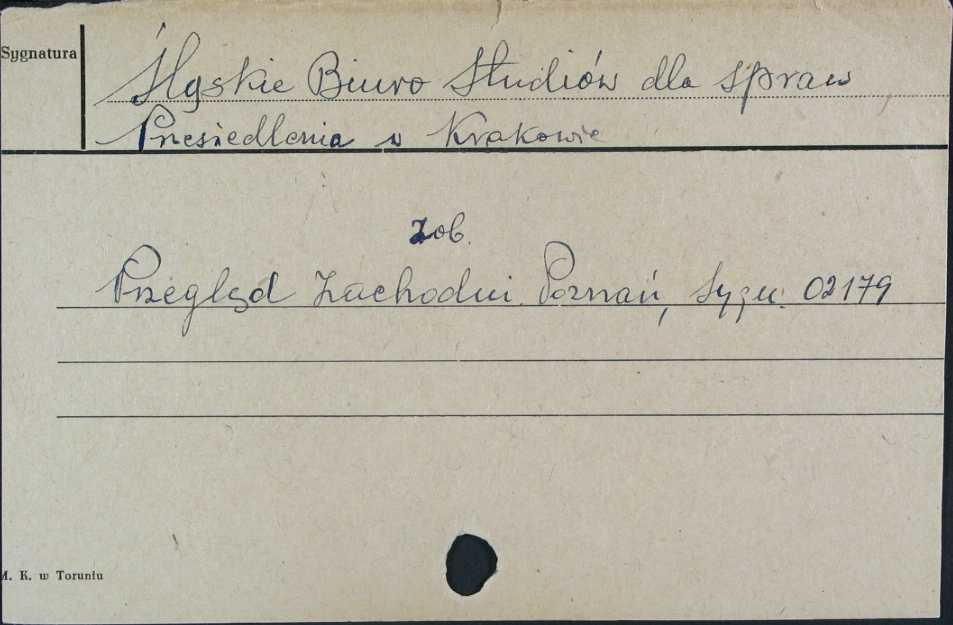 Sygnatura
Śląskie Biuro Studiów dla spraw
Przesiedlenia w Krakowie
Zob.
Przegląd Zachodni. Poznań, Sygn. 02179
M. K. w Toruniu